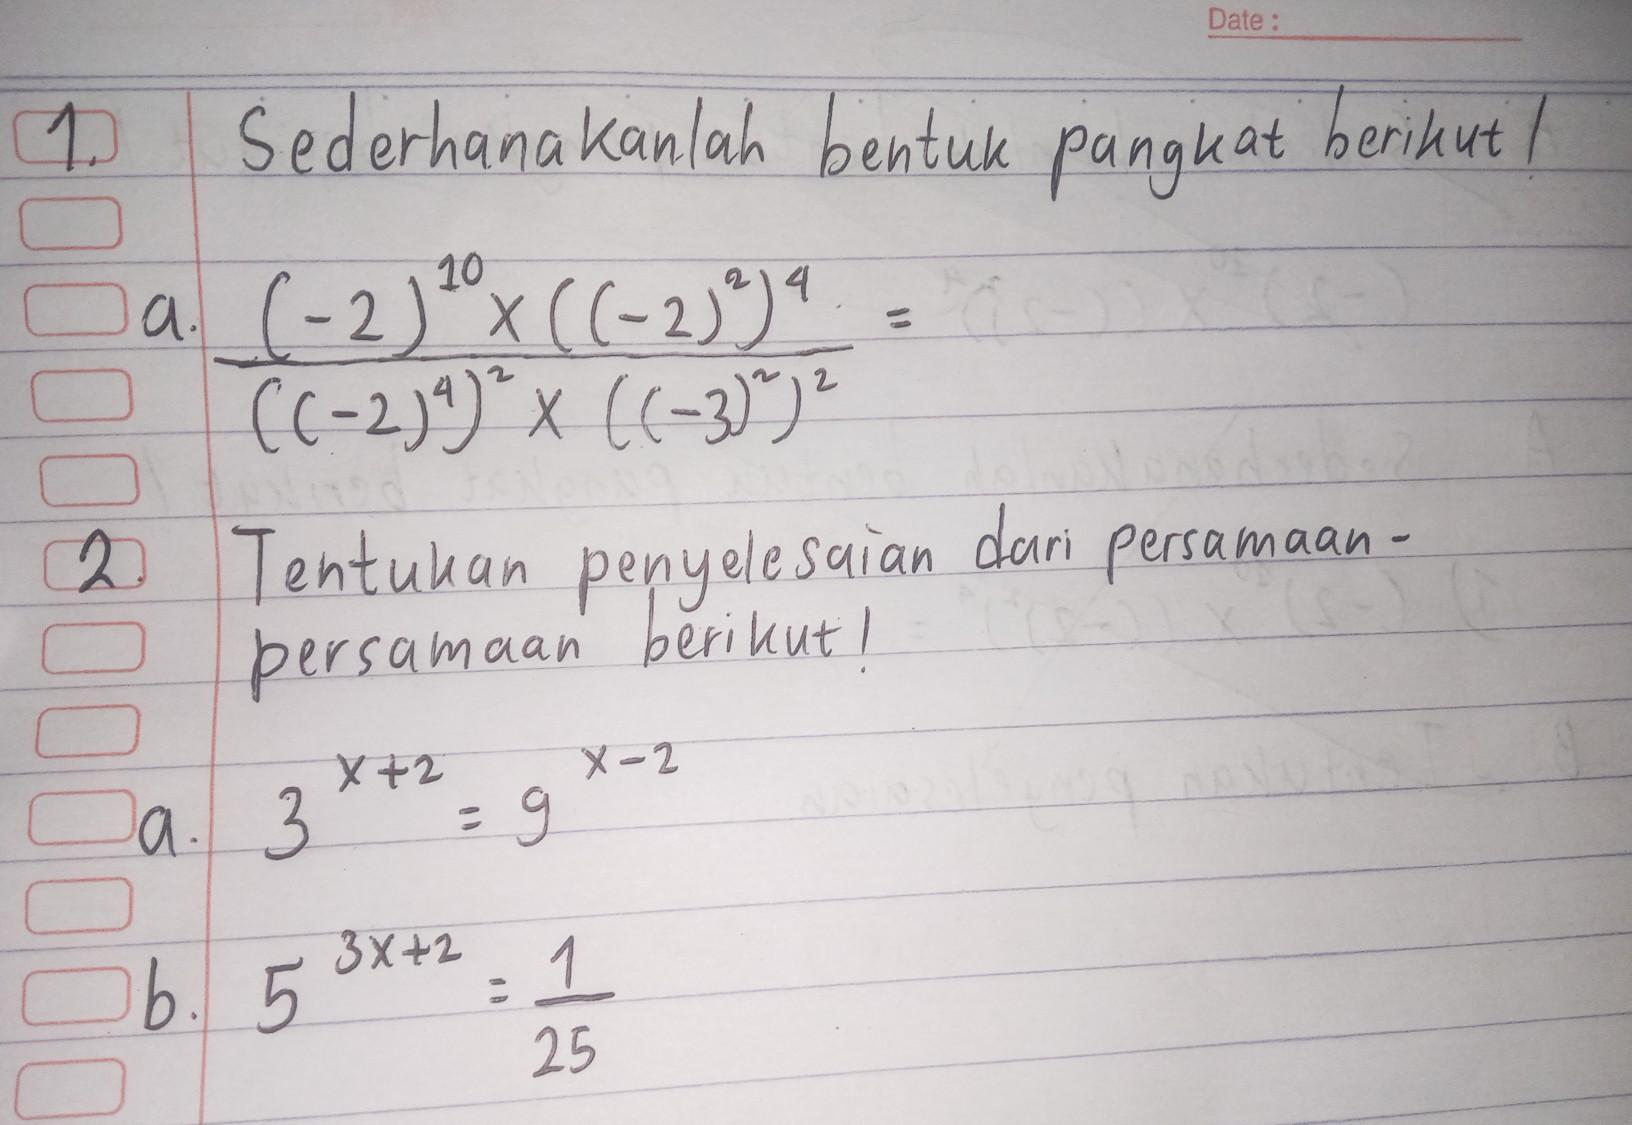 Date :
1. Sederhanakanlah bentuk pangkat berikut!
a. (-2)¹⁰ x ((-2)²)⁴ =
((-2)⁴)² x ((-3)²)²
2. Tentukan penyelesaian dari persamaan-
persamaan berikut!
a. 3ˣ⁺² = 9ˣ⁻²
b. 5³ˣ⁺² = 1
25